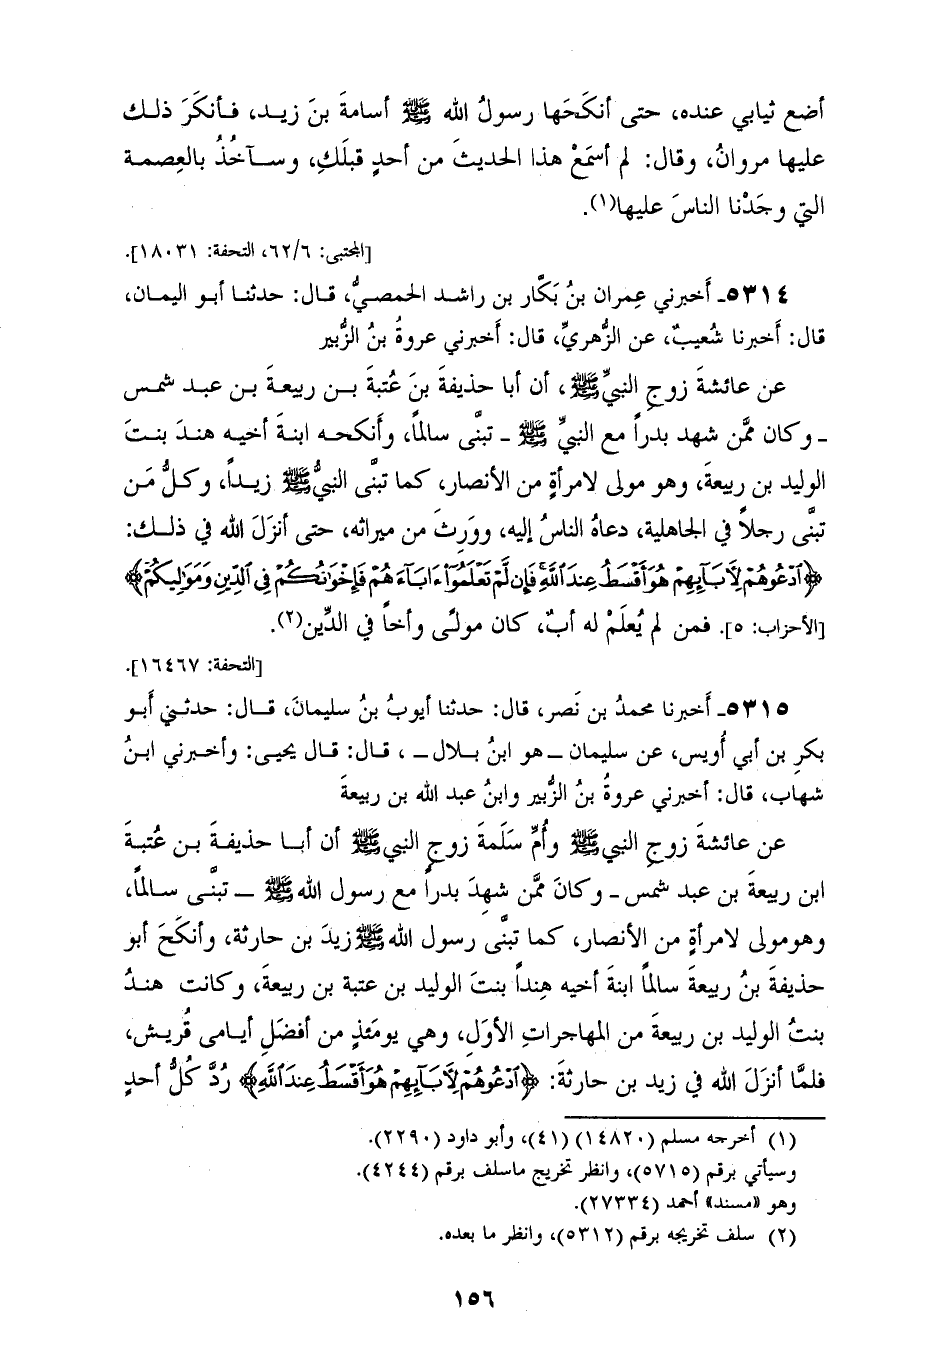 أضع ثيابي عنده، حتى أنكَحَها رسولُ الله ﷺ أسامةَ بنَ زيد، فأنكَرَ ذلك
عليها مروانُ، وقال: لم أسمَعْ هذا الحديثَ من أحدٍ قبلَكِ، وسآخُذُ بالعِصمة
التي وجَدْنا الناسَ عليها(١).
[المجتبى: ٦٢/٦، التحفة: ١٨٠٣١].
٥٣١٤ـ أَخبرني عِمران بنُ بَكَّار بن راشد الحمصيُّ، قال: حدثنا أبو اليمان،
قال: أَخبرنا شُعيبٌ، عن الزُّهريِّ، قال: أَخبرني عروةُ بنُ الزُّبير
عن عائشةَ زوجِ النبيِّ ﷺ، أن أبا حذيفةَ بنَ عُتبةَ بن ربيعةَ بن عبد شمس
ـ وكان ممَّن شهد بدراً مع النبيِّ ﷺ ـ تبنَّى سالماً، وأَنكحه ابنةَ أخيه هندَ بنتَ
الوليد بن ربيعةَ، وهو مولى لامرأةٍ من الأنصار، كما تبنَّى النبيُّ ﷺ زيداً، وكلُّ مَن
تبنَّى رجلاً في الجاهلية، دعاهُ الناسُ إليه، وورَِثَ من ميراثه، حتى أنزَلَ الله في ذلك:
﴿ٱدۡعُوهُمۡ لِأٓبَآئِهِمۡ هُوَ أَقۡسَطُ عِندَ ٱللَّهِۚ فَإِن لَّمۡ تَعۡلَمُوٓاْ ءَابَآءَهُمۡ فَإِخۡوَٰنُكُمۡ فِي ٱلدِّينِ وَمَوَٰلِيكُمۡ﴾
[الأحزاب: ٥]. فمن لم يُعلَمْ له أبٌ، كان مولًى وأخاً في الدِّين(٢).
[التحفة: ١٦٤٦٧].
٥٣١٥ـ أَخبرنا محمدُ بن نَصر، قال: حدثنا أيوبُ بنُ سليمانَ، قال: حدثني أَبو
بكرِ بن أبي أُويس، عن سليمان ـ هو ابنُ بلال ـ ، قال: قال يحيى: وأَخبرني ابنُ
شهاب، قال: أخبرني عروةُ بنُ الزُّبير وابنُ عبد الله بن ربيعةَ
عن عائشةَ زوجِ النبيِّ ﷺ وأُمِّ سَلَمةَ زوجِ النبيِّ ﷺ أن أبا حذيفةَ بن عُتبةَ
ابن ربيعةَ بن عبد شمس ـ وكانَ ممَّن شهِدَ بدراً مع رسول الله ﷺ ـ تبنَّى سالماً،
وهومولى لامرأةٍ من الأنصار، كما تبنَّى رسول الله ﷺ زيدَ بن حارثة، وأَنكَحَ أبو
حذيفةَ بنُ ربيعةَ سالماً ابنةَ أخيه هِنداً بنتَ الوليد بن عتبة بن ربيعةَ، وكانت هندُ
بنتُ الوليد بن ربيعةَ من المهاجرات الأُوَل، وهي يومَئذٍ من أفضَلِ أيامى قُريش،
فلمَّا أنزَلَ الله في زيد بن حارثة: ﴿ٱدۡعُوهُمۡ لِأٓبَآئِهِمۡ هُوَ أَقۡسَطُ عِندَ ٱللَّهِ﴾ رُدَّ كُلُّ أحدٍ
(١) أخرجه مسلم (١٤٨٢٠) (٤١)، وأبو داود (٢٢٩٠).
وسيأتي برقم (٥٧١٥)، وانظر تخريج ماسلف برقم (٤٢٤٤).
وهو «مسند» أحمد (٢٧٣٣٤).
(٢) سلف تخريجه برقم (٥٣١٢)، وانظر ما بعده.
١٥٦